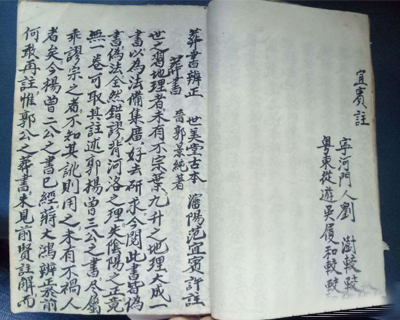 宜賓註
寧河門人劉 澍較較
粵東從遊吳履和較較
葬書辨正 世美堂古本 瀋陽范宜賓詳註
葬書 晉郭景純著
世之習地理者未有不宗葉九升之地理大成一
書以為法備集廣好去研求今閱此書皆偽
書偽法全然錯謬背河洛之理失陰陽之正竟
無一卷可取其註述郭楊曾三公之書尽屬
乖謬宗之者不知其訛則用之未有不禍人
者矣今楊曾二公之書已經蔣大鴻辨正前
何敢再註惟郭公之葬書未見前賢註解而